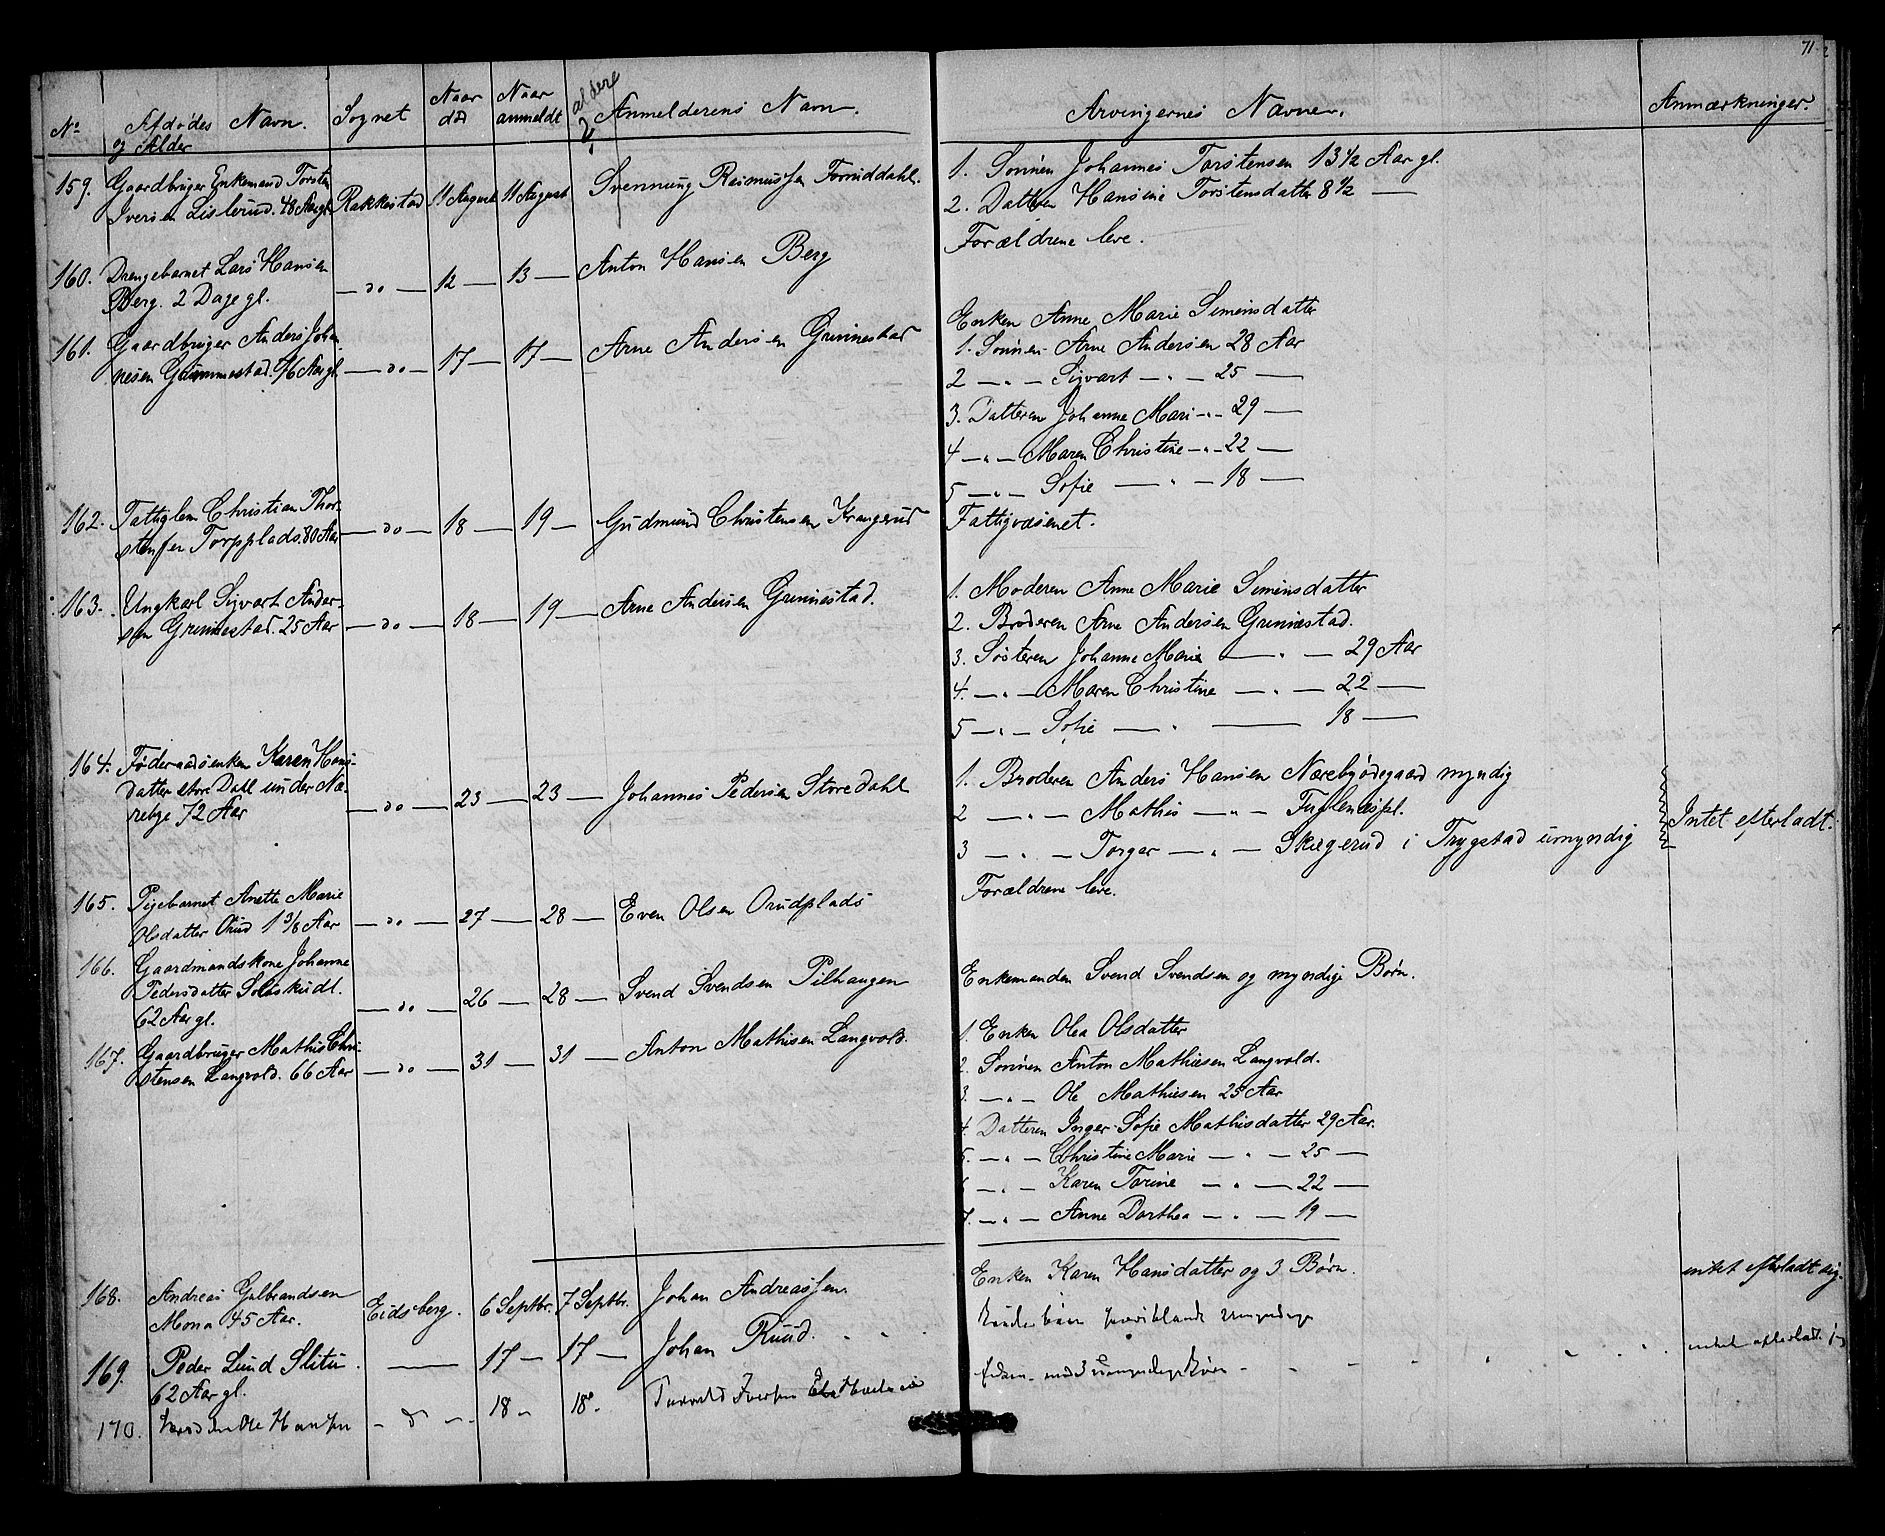 71
No
Afdødes Navn.
og Alder
Sognet
Naar
død
Naar
anmeldt
Anmelderens Navn.
Arvingernes Navne.
Anmærkninger.
159. Gaardbruger Enkemand Torsten
Iversen Lislerud. 48 Aar gl. Rakkestad 11 August 11 August Svennung Rasmussen
1. Sønnen Johannes Torstensen 13 1/2 Aar gl.
2. Datteren Hansine Torstensdatter 8 1/2 —
160. Drengebarnet Lars Hansen
Berg. 2 Dage gl. — do — 12 — 13 — Anton Hansen Berg
Forældrene leve.
161. Gaardbruger Anders Johan
nesen Grimmestad. Aar gl. — do — 17 — 17 — Arne Andersen Grimmestad
Enken Anne Marie Simensdatter
1. Sønnen Arne Andersen 28 Aar
2 — „ — Sigvart — „ — 25 —
3. Datteren Johanne Mari - „ - 29 —
4 — „ — Maren Christine — „ — 22 —
5 — „ — Sofie — „ — 18 —
162. Fattiglem Christian Thor-
stensen Torpplads. 80 Aar — do — 18 — 19 — Gudmund Christensen Krangerud
Fattigvæsenet.
163. Ungkarl Sigvart Ander-
sen Grimmestad. 25 Aar — do — 18 — 19 — Arne Andersen Grimmestad.
1. Moderen Anne Marie Simensdatter
2. Broderen Arne Andersen Grimmestad.
3. Søsteren Johanne Marie — „ — 29 Aar
4. — „ — Maren Christine — „ — 22 —
5 — „ — Sofie — „ — 18 —
164. Føderaadsenken Karen Hans-
datter store Dahl under Næ-
rebye 72 Aar — do — 23 — 23 — Johannes Pedersen Store Dahl
1. Broderen Anders Hansen Nærebyødegaard myndig
2 — „ — Mathis — „ —
3 — „ — Torger — „ — Skægerud i Trygstad umyndig
Intet efterladt.
165. Pigebarnet Anette Marie
Olsdatter Orud 1 3/8 Aar — do — 27 — 28 — Even Olsen Orudplads
Forældrene leve.
166. Gaardmandskone Johanne
Pedersdatter
62 Aar gl. — do — 26 — 28 — Svend Svendsen Pilhaugen
Enkemanden Svend Svendsen og myndige Børn.
167. Gaardbruger Mathis Chri-
stensen Langvold. 66 Aar — do — 31 — 31 — Anton Mathisen Langvold.
1. Enken Olea Olsdatter
2. Sønnen Anton Mathiesen Langvold.
3. — „ — Ole Mathiesen 25 Aar
4. Datteren Inger Sofie Mathisdatter 29 Aar.
5. — „ — Christine Marie — „ — 25 —
— „ — Karen Torine — „ — 22 —
7. — „ — Anne Dorthea — „ — 19 —
168. Andreas Gulbrandsen
Mona 45 Aar. Eidsberg. 6 Septbr. 7 Septbr. Johan Andreassen
Enken Karen Hansdatter og 3 Børn.
intet efterladt sig.
169. Peder Lund Slitu
62 Aar gl. — 17 — 17 — Johan Ruud.
170. Ole Hansen — do — 18 — 18